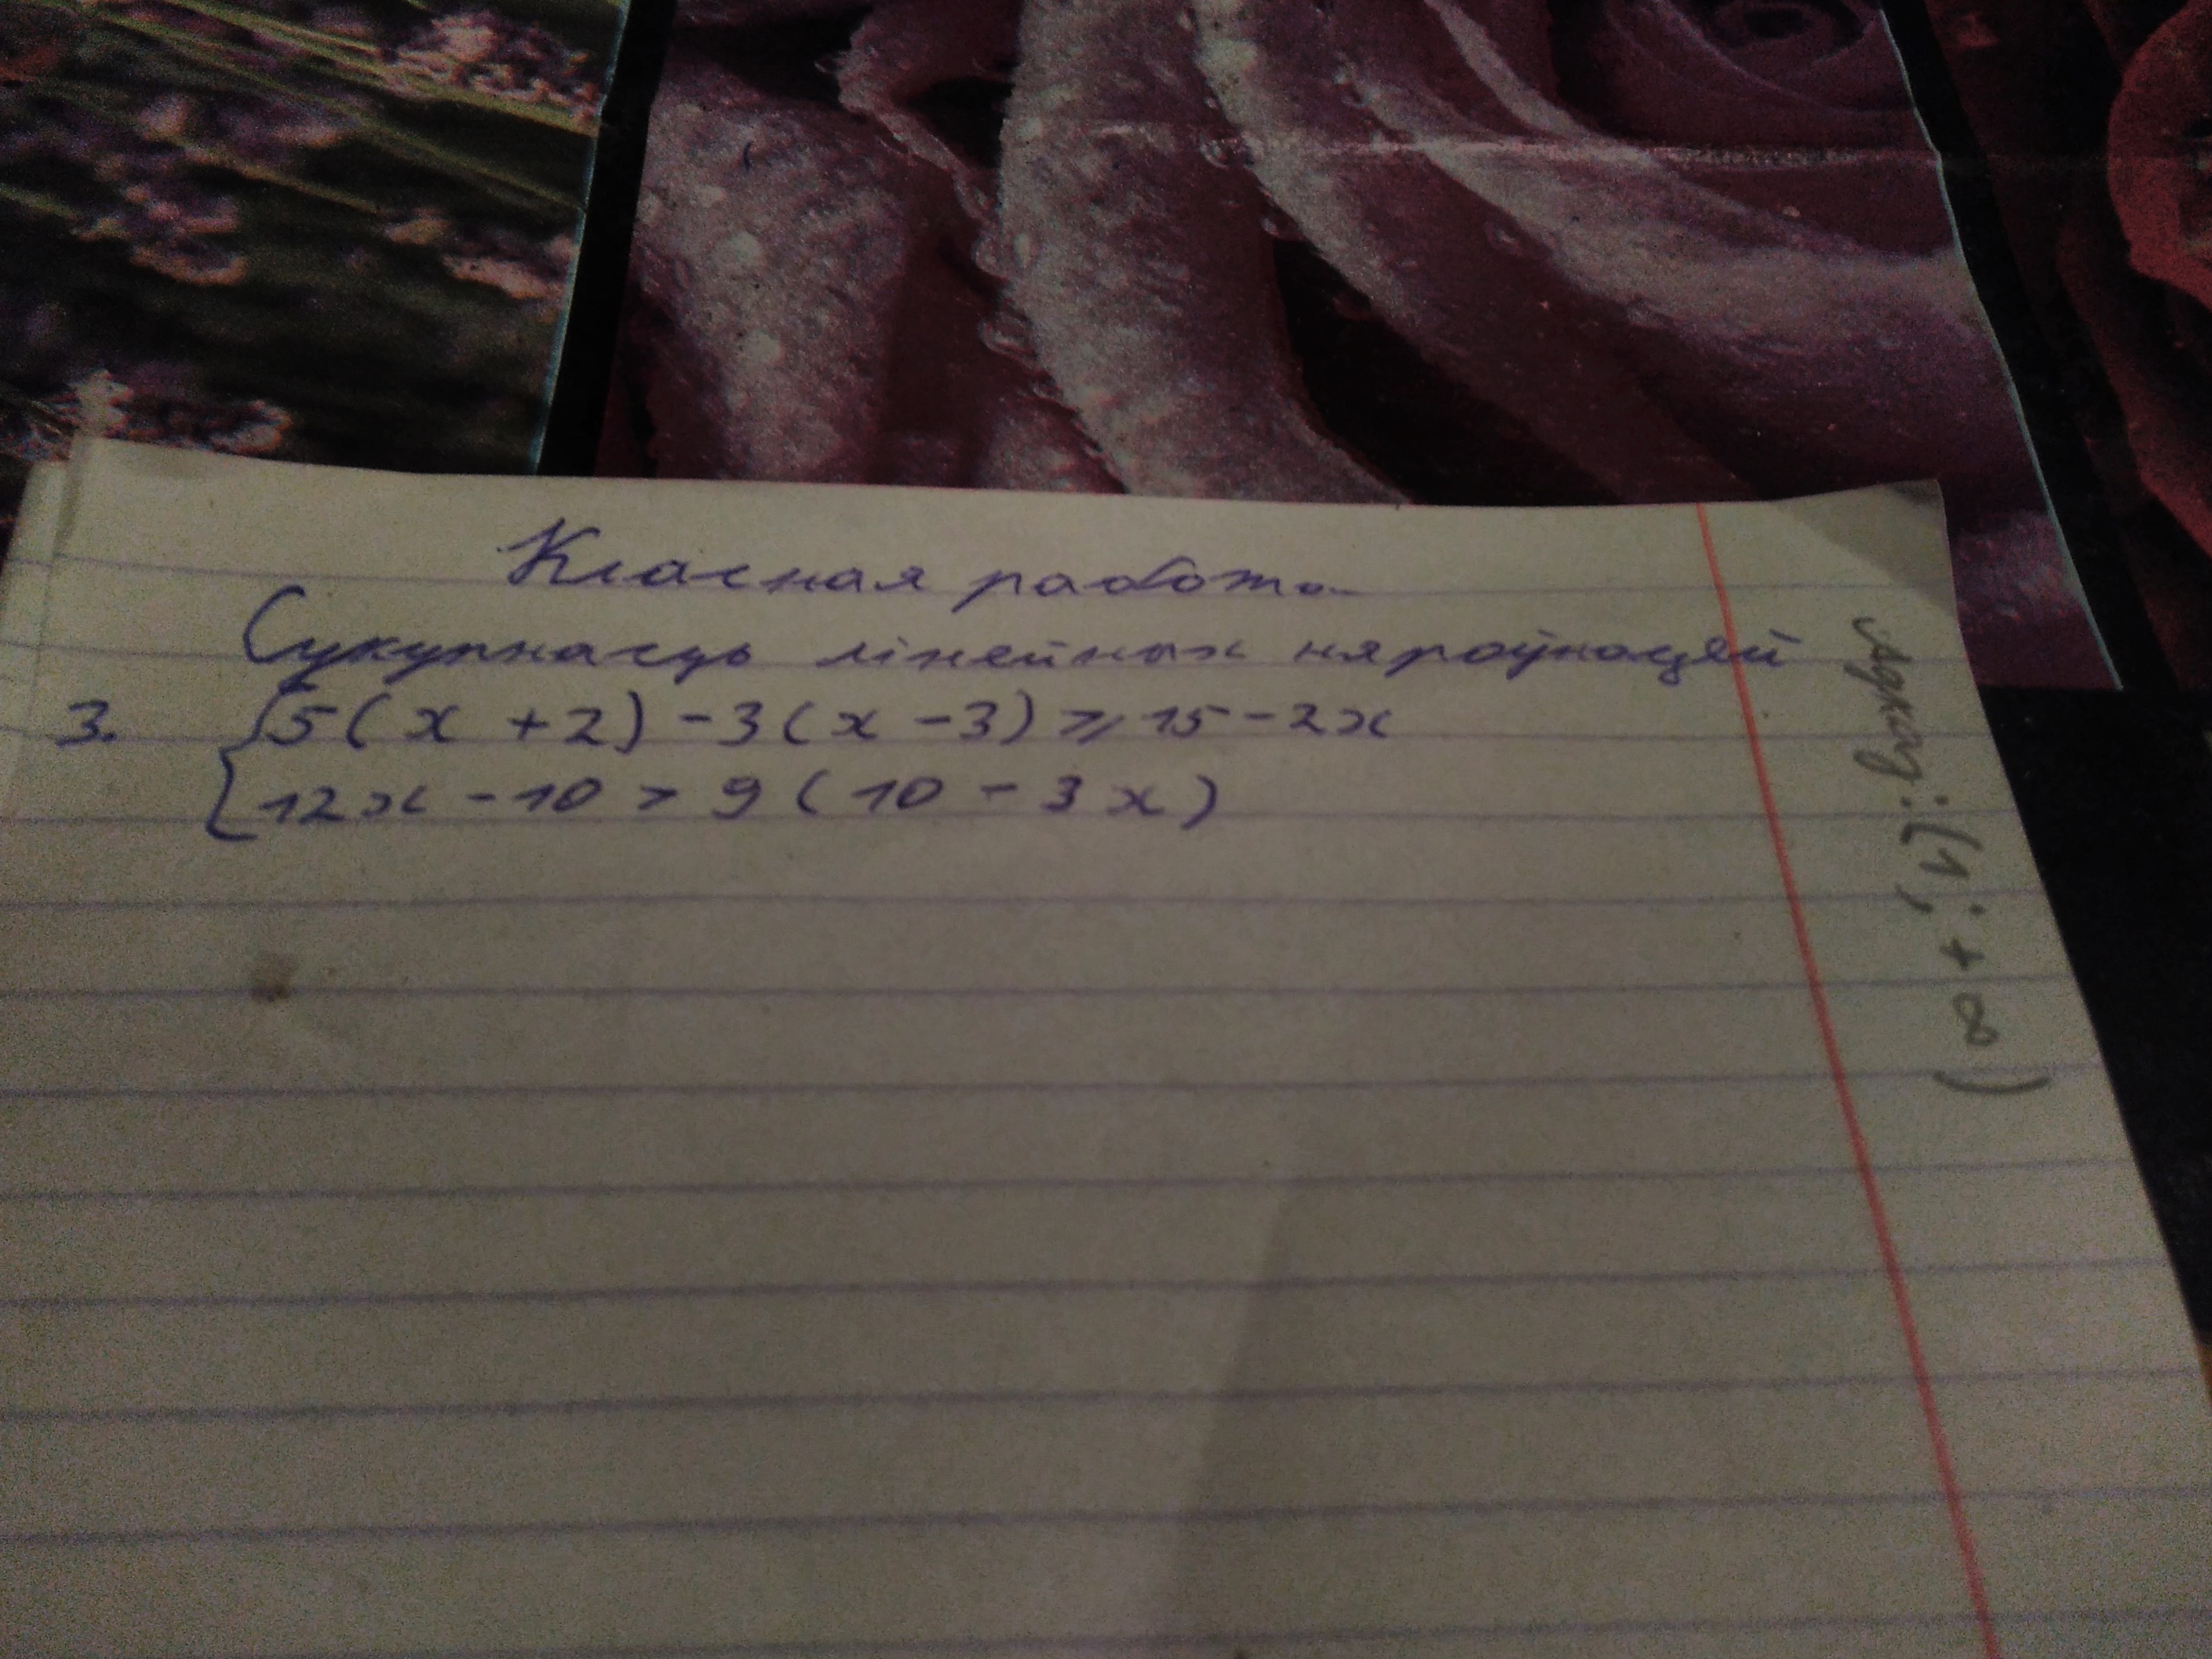 Класная работа
Сукупнасць лінейных няроўнасцей
3. {5(x + 2) - 3(x - 3) ⩾ 15 - 2x
12x - 10 > 9(10 - 3x)
Адказ: (1; +∞)